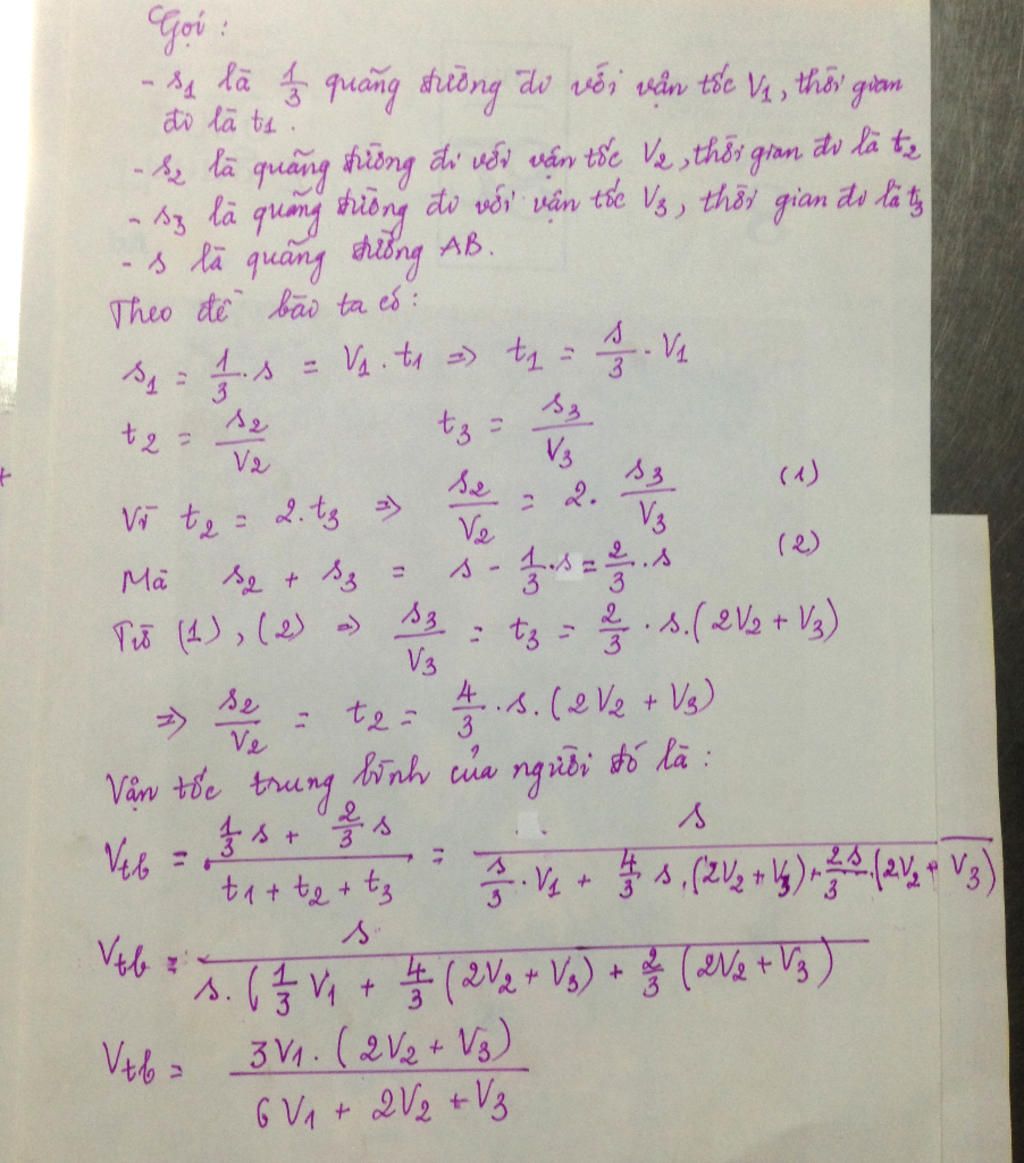 Gọi :
- s1 là 1/3 quãng đường đi với vận tốc V1, thời gian
đi là t1.
- s2 là quãng đường đi với vận tốc V2, thời gian đi là t2
- s3 là quãng đường đi với vận tốc V3, thời gian đi là t3
- s là quãng đường AB.
Theo đề bài ta có :
s1 = 1/3 . s = V1 . t1 => t1 = s/3 . V1
t2 = s2/V2 t3 = s3/V3
Vì t2 = 2. t3 => s2/V2 = 2. s3/V3 (1)
Mà s2 + s3 = s - 1/3 . s = 2/3 . s (2)
Từ (1), (2) => s3/V3 = t3 = 2/3 . s.(2V2 + V3)
=> s2/V2 = t2 = 4/3 . s. (2V2 + V3)
Vận tốc trung bình của người đó là :
Vtb = (1/3 s + 2/3 s)/(t1 + t2 + t3) = s/(s/3 . V1 + 4/3 s.(2V2 + V3) + 2s/3 .(2V2 + V3)
Vtb = s/s. (1/3 V1 + 4/3 (2V2 + V3) + 2/3 (2V2 + V3)
Vtb = 3V1. (2V2 + V3)/6V1 + 2V2 + V3